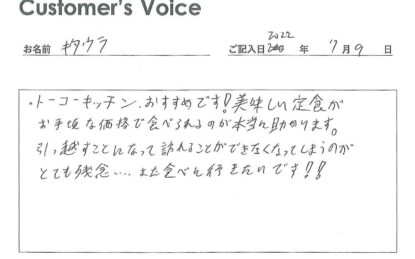 Customer's Voice
2022
お名前 キタウラ ご記入日 年 7月 9 日
・トーコーキッチン、おすすめです!美味しい定食が
お手頃な価格で食べられるのが本当に助かります。
引っ越すことになって訪れることができなくなってしまうのが
とても残念…. また食べに行きたいです!!